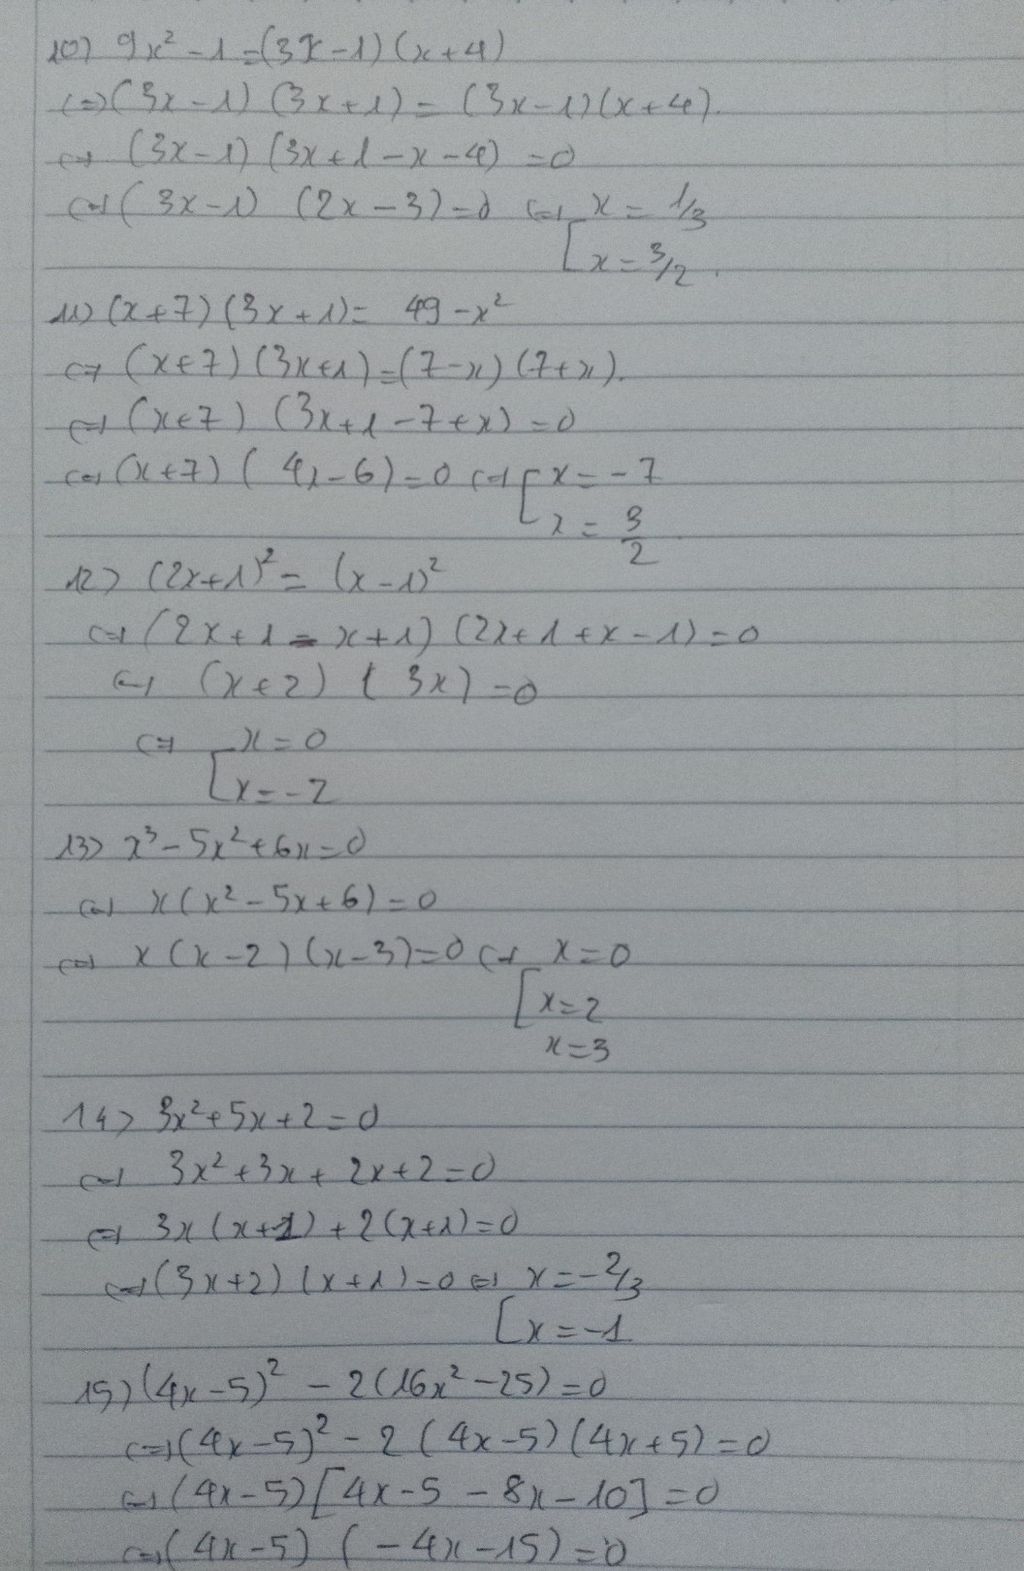 10) 9x² - 1 = (3x - 1)(x + 4)
<=> (3x - 1)(3x + 1) = (3x - 1)(x + 4).
<=> (3x - 1)(3x + 1 - x - 4) = 0
<=> (3x - 1) (2x - 3) = 0 <=> [ x = 1/3
x = 3/2.
11) (x + 7)(3x + 1) = 49 - x²
<=> (x + 7)(3x + 1) = (7 - x)(7 + x).
<=> (x + 7) (3x + 1 - 7 + x) = 0
<=> (x + 7)(4x - 6) = 0 <=> [ x = -7
x = 3/2
12) (2x + 1)² = (x - 1)²
<=> (2x + 1 - x + 1)(2x + 1 + x - 1) = 0
<=> (x + 2)(3x) = 0
<=> [ x = 0
x = -2
13) x³ - 5x² + 6x = 0
<=> x(x² - 5x + 6) = 0
<=> x(x - 2)(x - 3) = 0 <=> [ x = 0
x = 2
x = 3
14) 3x² + 5x + 2 = 0
<=> 3x² + 3x + 2x + 2 = 0
<=> 3x(x + 1) + 2(x + 1) = 0
<=> (3x + 2)(x + 1) = 0 <=> [ x = -2/3
x = -1
15) (4x - 5)² - 2(16x² - 25) = 0
<=> (4x - 5)² - 2(4x - 5)(4x + 5) = 0
<=> (4x - 5)[4x - 5 - 8x - 10] = 0
<=> (4x - 5) (-4x - 15) = 0